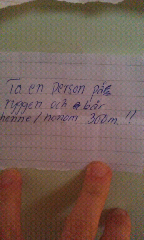 Ta en person på
ryggen och bär
henne/honom 300m !!